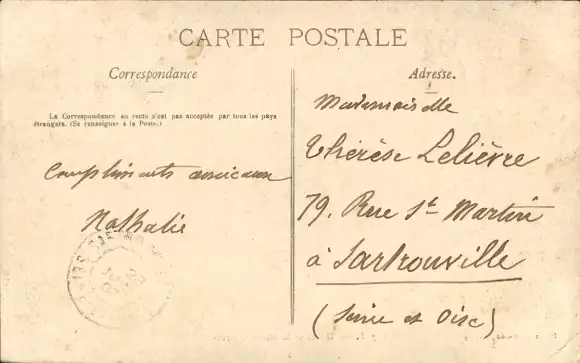 CARTE POSTALE
Correspondance
La Correspondance au recto n'est pas acceptée par tous les pays
étrangers. (Se renseigner à la Poste.)
Compliments amicaux
Nathalie
Adresse.
Mademoiselle
Thérèse Lelièvre
79. Rue St Martin
à Sartrouville
(Seine et Oise)